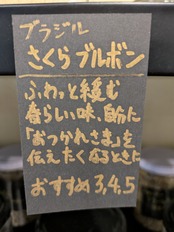 ブラジル
さくらブルボン
ふわっと緩む
春らしい味、誰かに
「おつかれさま」を
伝えたくなるときに
おすすめ3,4,5